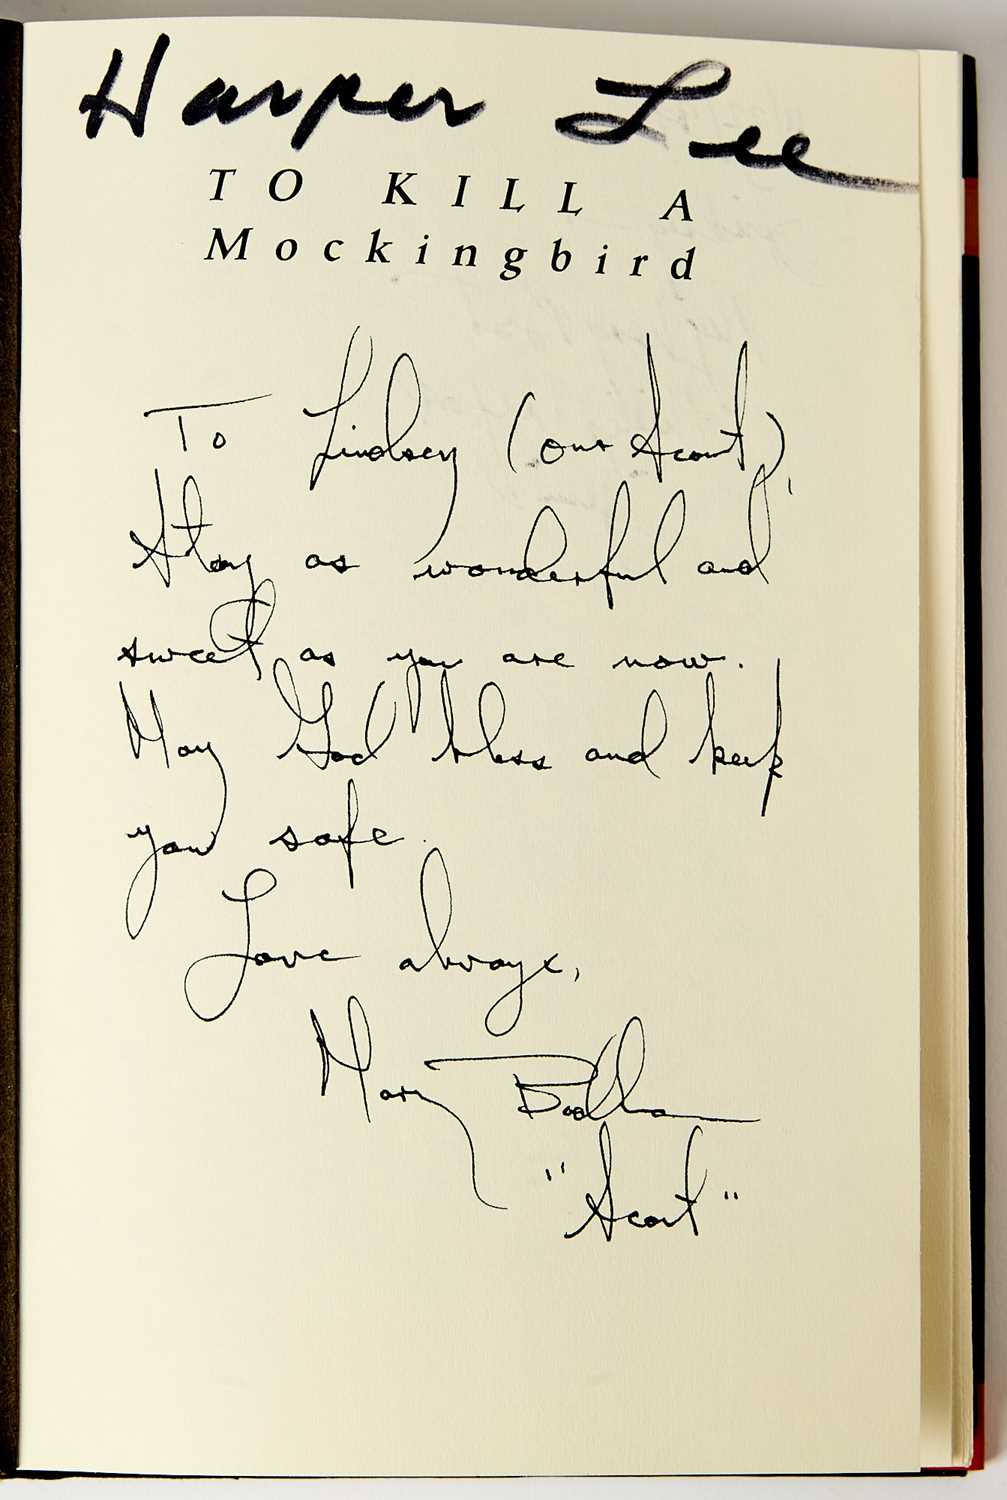 Harper Lee
TO KILL A
Mockingbird
To Lindsey (our Scout),
Stay as wonderful and
sweet as you are now.
May God bless and keep
you safe.
Love always,
Mary Badham
"Scout"